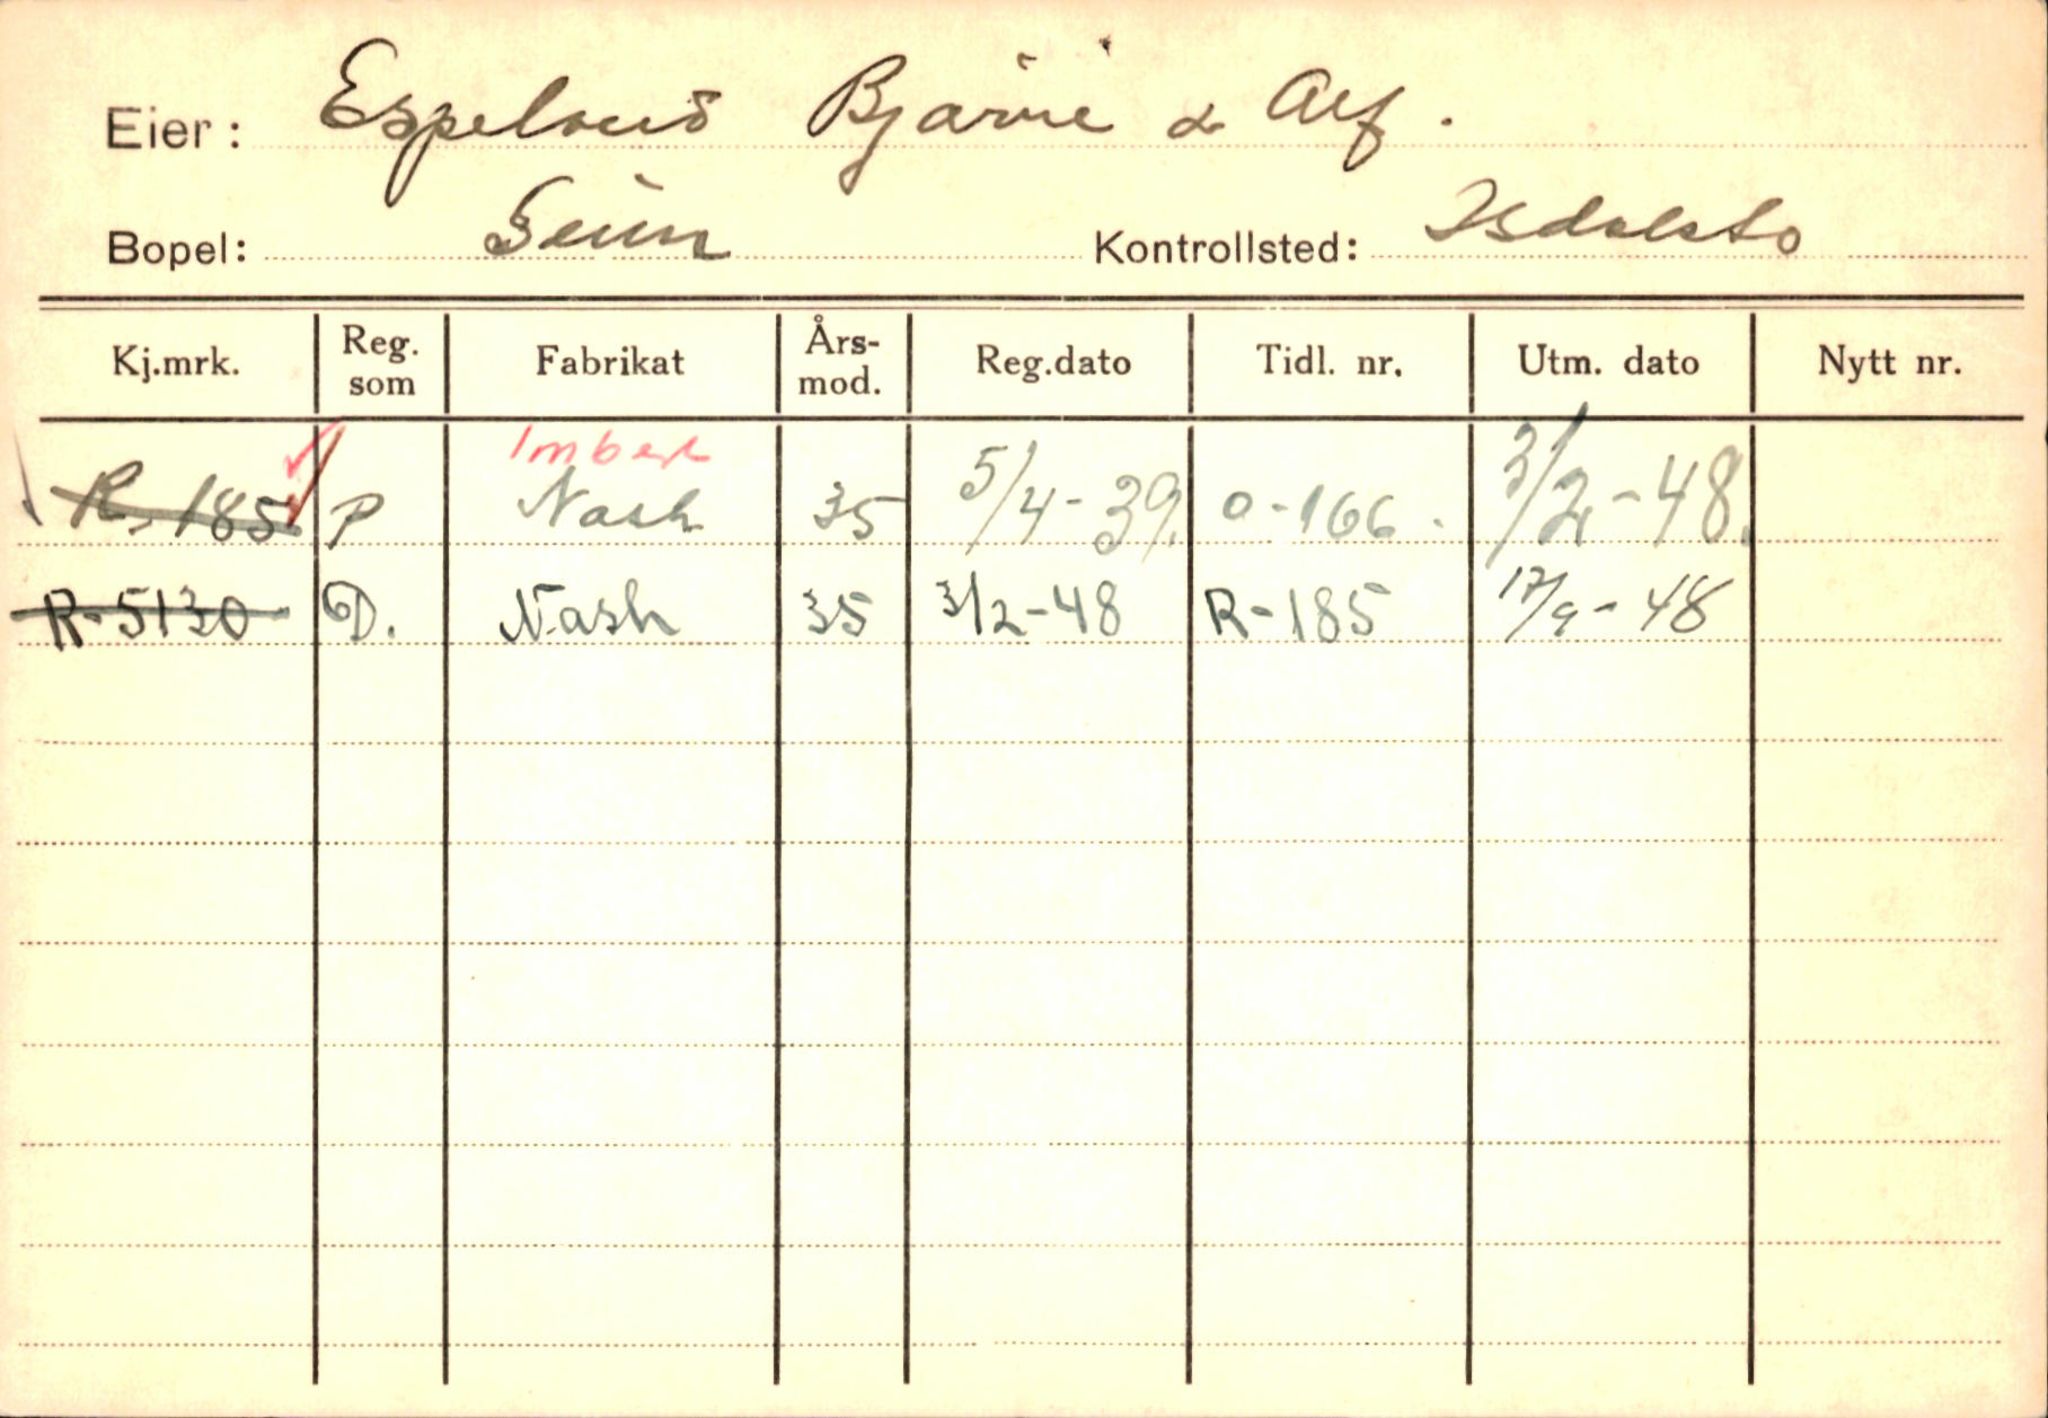 Eier: Espeland Bjarne & Alf.
Bopel: Seim Kontrollsted: Isdalstø
Kj.mrk. Reg. som Fabrikat Års- mod. Reg.dato Tidl. nr. Utm. dato Nytt nr.
Imbert
R-185 P Nash 35 5/4-39. O-166. 3/2-48.
R-5130 D. Nash 35 3/2-48 R-185 17/9-48